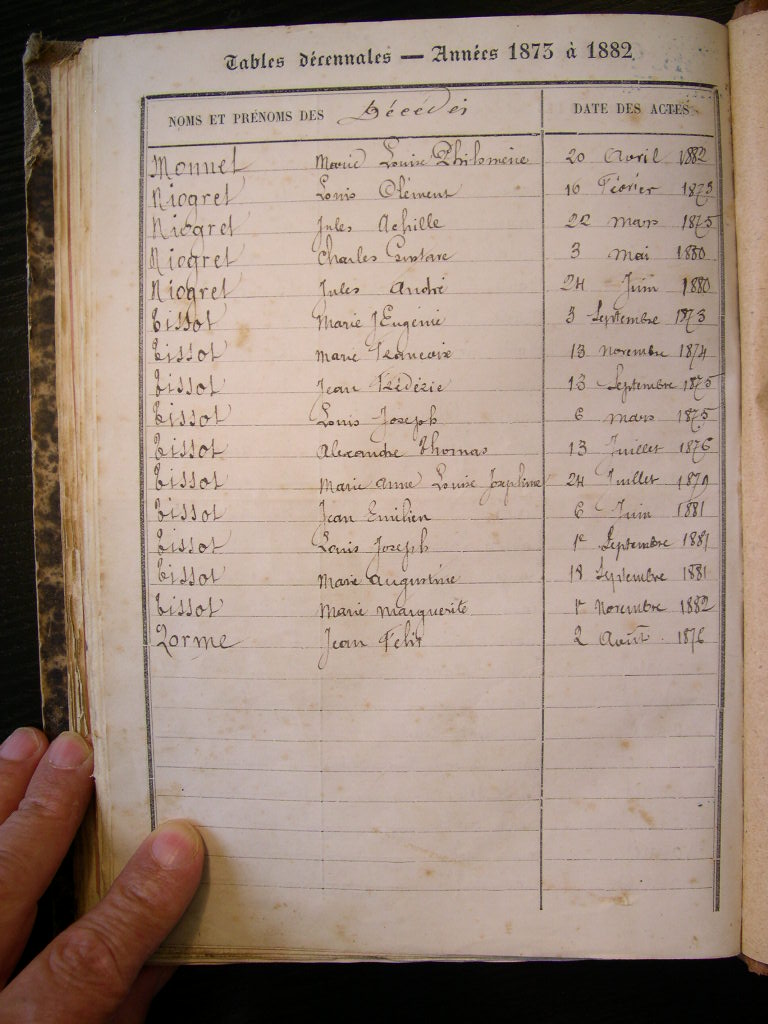 Tables décennales — Années 1873 à 1882
NOMS ET PRÉNOMS DES Décédés DATE DES ACTES
Monnet Marie Louise Philomène 20 Avril 1882
Niogret Louis Clément 16 Février 1875
Niogret Jules Achille 22 mars 1875
Niogret Charles Gustave 3 mai 1880
Niogret Jules André 24 Juin 1880
Tissot Marie Eugenie 3 Septembre 1873
Tissot Marie Francoise 13 novembre 1874
Tissot Jean Frédéric 13 Septembre 1875
Tissot Louis Joseph 6 mars 1875
Tissot Alexandre Thomas 13 Juillet 1876
Tissot Marie Anne Louise Josephine 24 Juillet 1879
Tissot Jean Emilien 6 Juin 1881
Tissot Louis Joseph 1e Septembre 1881
Tissot Marie Augustine 18 Septembre 1881
Tissot Marie Marguerite 1r Novembre 1882
Jean Felix 2 Août 1876